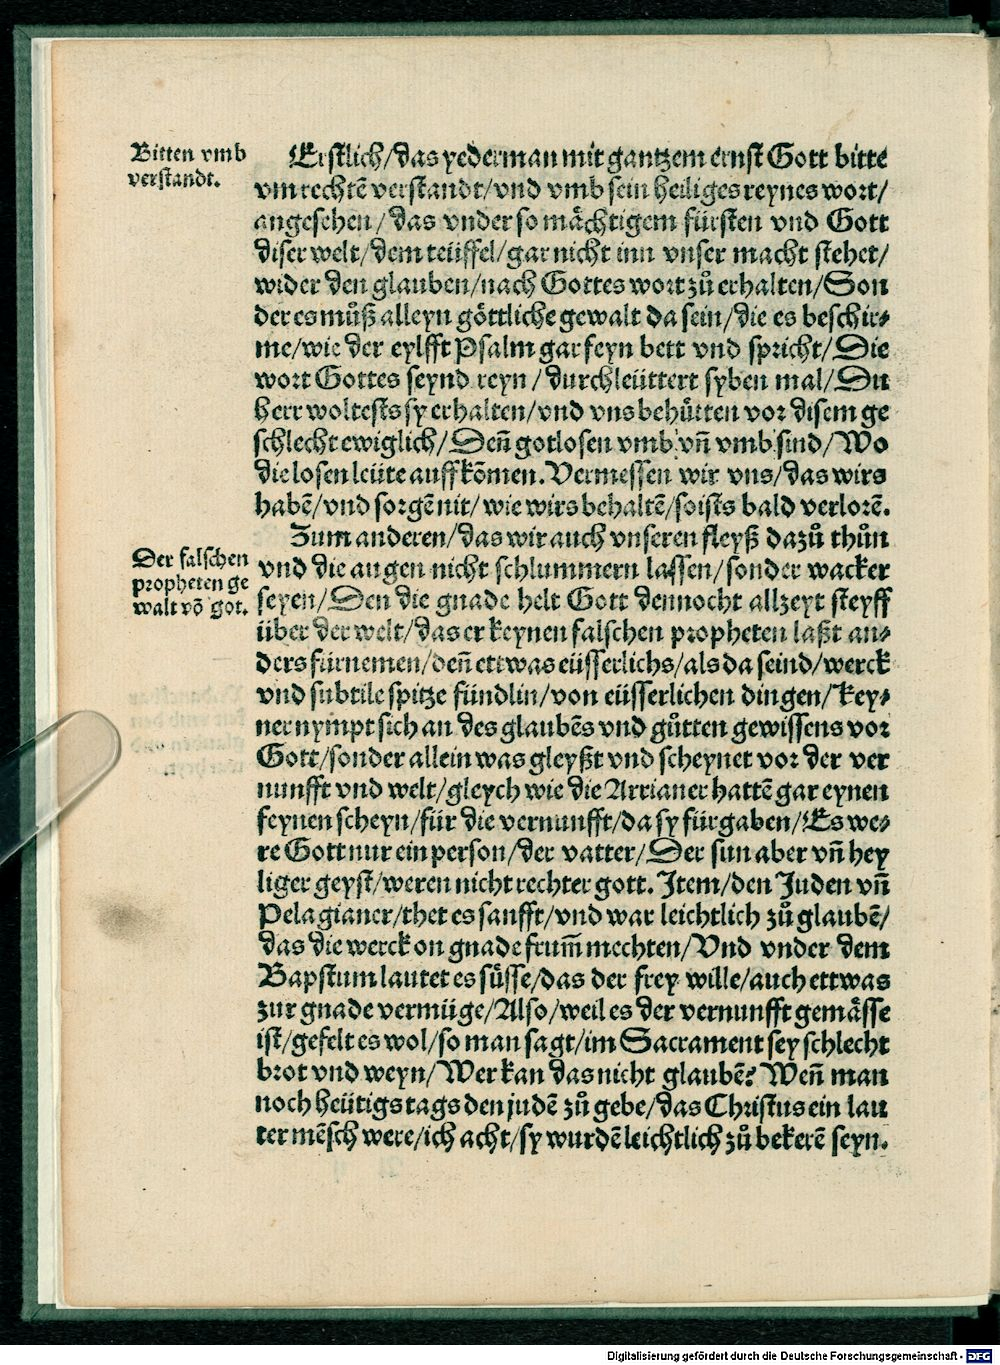 Bitten vmb
verstandt.
Erstlich/das yederman mit gantzem ernst Gott bitte
vm rechtē verstandt/vnd vmb sein heiliges reynes wort/
angesehen/das vnder so mächtigem fürsten vnd Gott
diser welt/dem teüffel/gar nicht inn vnser macht stehet/
wider den glauben/nach Gottes wort zů erhalten/Son
der es můß alleyn göttliche gewalt da sein/die es beschir⸗
me/wie der eylfft Psalm gar feyn bett vnd spricht/Die
wort Gottes seynd reyn/durchleüttert syben mal/Du
herr woltests sy erhalten/vnd vns behütten vor disem ge
schlecht ewiglich/Deñ gotlosen vmb vñ vmb sind/Wo
die losen leüte auffkōmen. Vermessen wir vns/das wirs
habē/vnd sorgē nit/wie wirs behaltē/so ists bald verlorē.
Zum anderen/das wir auch vnseren fleyß dazů thůn
Der falschen
propheten ge
walt vō got.
vnd die augen nicht schlummern lassen/sonder wacker
seyen/Den die gnade helt Gott dennocht allzeyt steyff
über der welt/das er keynen falschen propheten laßt an⸗
ders fürnemen/deñ ettwas eüsserlichs/als da seind/werck
vnd subtile spitze fündlin/von eüsserlichen dingen/key⸗
ner nympt sich an des glaubēs vnd gůtten gewissens vor
Gott/sonder allein was gleyßt vnd scheynet vor der ver
nunfft vnd welt/gleych wie die Arrianer hattē gar eynen
feynen scheyn/für die vernunfft/da sy fürgaben/Es we⸗
re Gott nur ein person/der vatter/Der sun aber vñ hey
liger geyst/weren nicht rechter gott. Item/den Juden vñ
Pelagianer/thet es sanfft/vnd war leichtlich zů glaubē/
das die werck on gnade frum̄ mechten/Vnd vnder dem
Bapstum lautet es süsse/das der frey wille/auch ettwas
zur gnade vermüge/Also/weil es der vernunfft gemässe
ist/gefelt es wol/so man sagt/im Sacrament sey schlecht
brot vnd weyn/Wer kan das nicht glaubē? Weñ man
noch heütigs tags den judē zů gebe/das Christus ein lau
ter mēsch were/ich acht/sy wurdē leichtlich zů bekerē seyn.
Digitalisierung gefördert durch die Deutsche Forschungsgemeinschaft - DFG